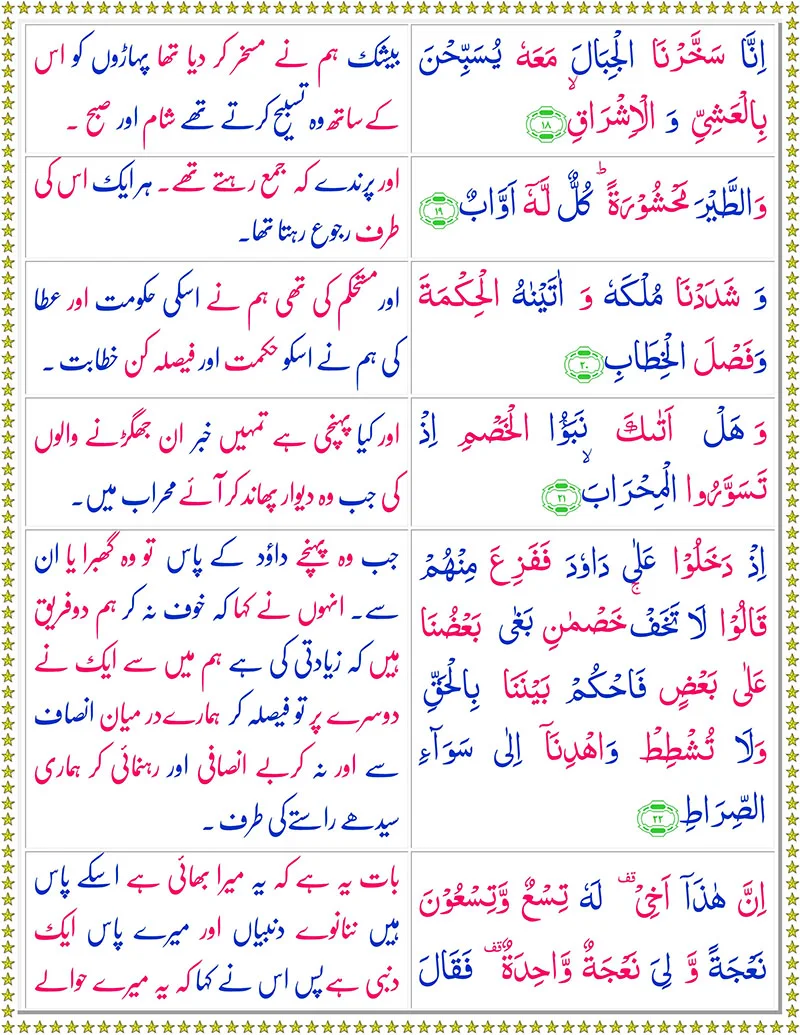 اِنَّا سَخَّرْنَا الْجِبَالَ مَعَهٗ يُسَبِّحْنَ
بِالْعَشِيِّ وَ الْاِشْرَاقِۙ ۱۸
بیشک ہم نے مسخر کر دیا تھا پہاڑوں کو اس
کے ساتھ وہ تسبیح کرتے تھے شام اور صبح ۔
وَالطَّيْرَ مَحْشُوْرَةً ؕ كُلٌّ لَّهٗۤ اَوَّابٌ ۱۹
اور پرندے کہ جمع رہتے تھے۔ ہر ایک اس کی
طرف رجوع رہتا تھا۔
وَ شَدَدْنَا مُلْكَهٗ وَ اٰتَيْنٰهُ الْحِكْمَةَ
وَفَصْلَ الْخِطَابِ ۲۰
اور مستحکم کی تھی ہم نے اسکی حکومت اور عطا
کی ہم نے اسکو حکمت اور فیصلہ کن خطابت ۔
وَ هَلْ اَتٰىكَ نَبَؤُا الْخَصْمِ اِذْ
تَسَوَّرُوا الْمِحْرَابَۙ ۲۱
اور کیا پہنچی ہے تمہیں خبر ان جھگڑنے والوں
کی جب وہ دیوار پھاند کر آئے محراب میں۔
اِذْ دَخَلُوْا عَلٰى دَاوٗدَ فَفَزِعَ مِنْهُمْ
قَالُوْا لَا تَخَفْ ۚ خَصْمٰنِ بَغٰى بَعْضُنَا
عَلٰى بَعْضٍ فَاحْكُمْ بَيْنَنَا بِالْحَقِّ
وَلَا تُشْطِطْ وَاهْدِنَاۤ اِلٰى سَوَآءِ
الصِّرَاطِ ۲۲
جب وہ پہنچے داؤد کے پاس تو وہ گھبرا یا ان
سے۔ انہوں نے کہا کہ خوف نہ کر ہم دوفریق
ہیں کہ زیادتی کی ہے ہم میں سے ایک نے
دوسرے پر تو فیصلہ کر ہمارے درمیان انصاف
سے اور نہ کر بے انصافی اور رہنمائی کر ہماری
سیدھے راستے کی طرف ۔
اِنَّ هٰذَاۤ اَخِيْ ۫ لَهٗ تِسْعٌ وَّتِسْعُوْنَ
نَعْجَةً وَّ لِيَ نَعْجَةٌ وَّاحِدَةٌ ۫ فَقَالَ
بات یہ ہے کہ یہ میرا بھائی ہے اسکے پاس
ہیں ننانوے دنبیاں اور میرے پاس ایک
دنبی ہے پس اس نے کہا کہ یہ میرے حوالے